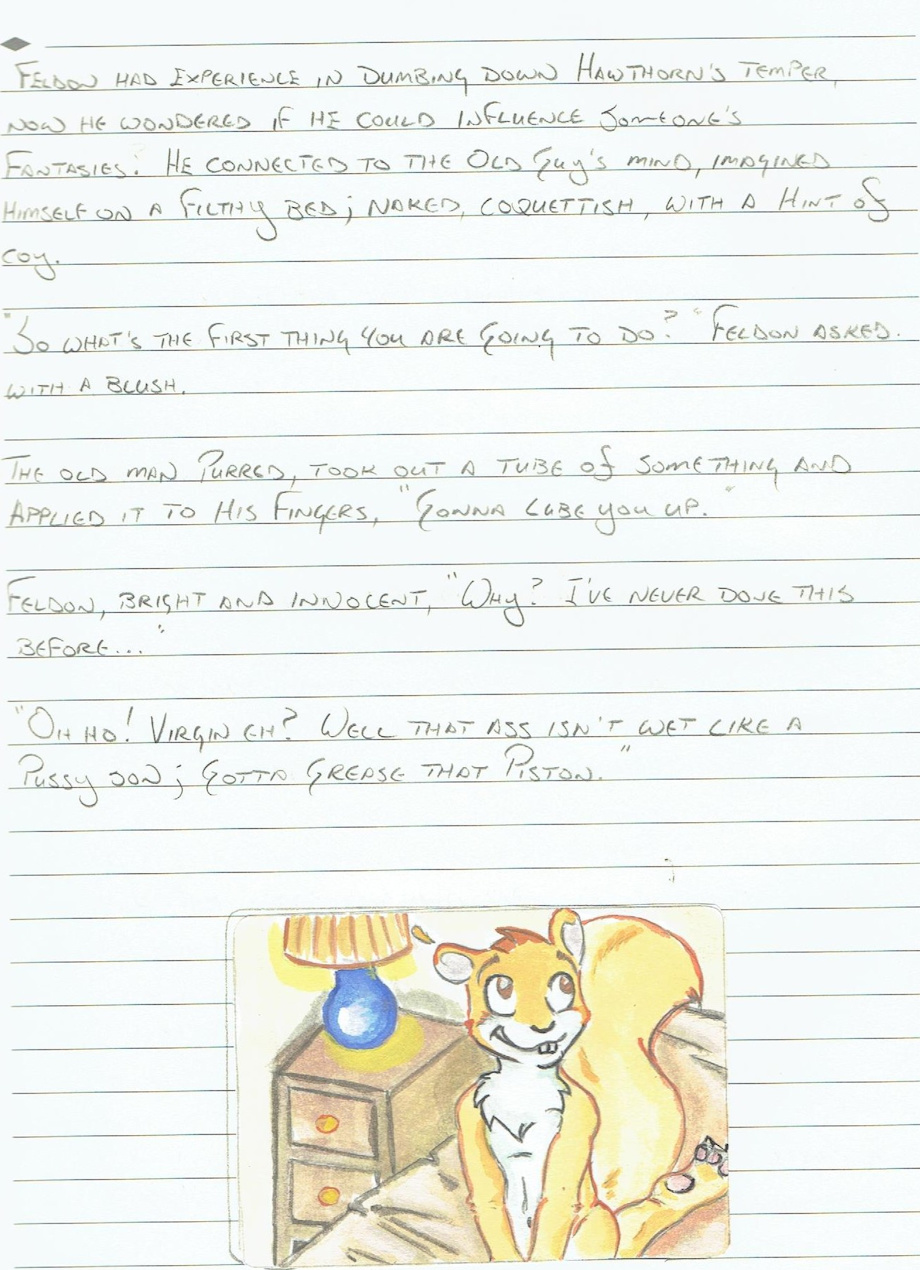 FELDON HAD EXPERIENCE IN DUMBING DOWN HAWTHORN'S TEMPER,
NOW HE WONDERED IF HE COULD INFLUENCE SOMEONE'S
FANTASIES. HE CONNECTED TO THE OLD GUY'S MIND, IMAGINED
HIMSELF ON A FILTHY BED; NAKED, COQUETTISH, WITH A HINT OF
COY.
"SO WHAT'S THE FIRST THING YOU ARE GOING TO DO?" FELDON ASKED.
WITH A BLUSH.
THE OLD MAN PURRED, TOOK OUT A TUBE OF SOMETHING AND
APPLIED IT TO HIS FINGERS, "GONNA LUBE YOU UP."
FELDON, BRIGHT AND INNOCENT, "WHY? I'VE NEVER DONE THIS
BEFORE..."
"OH HO! VIRGIN EH? WELL THAT ASS ISN'T WET LIKE A
PUSSY SON; GOTTA GREASE THAT PISTON."